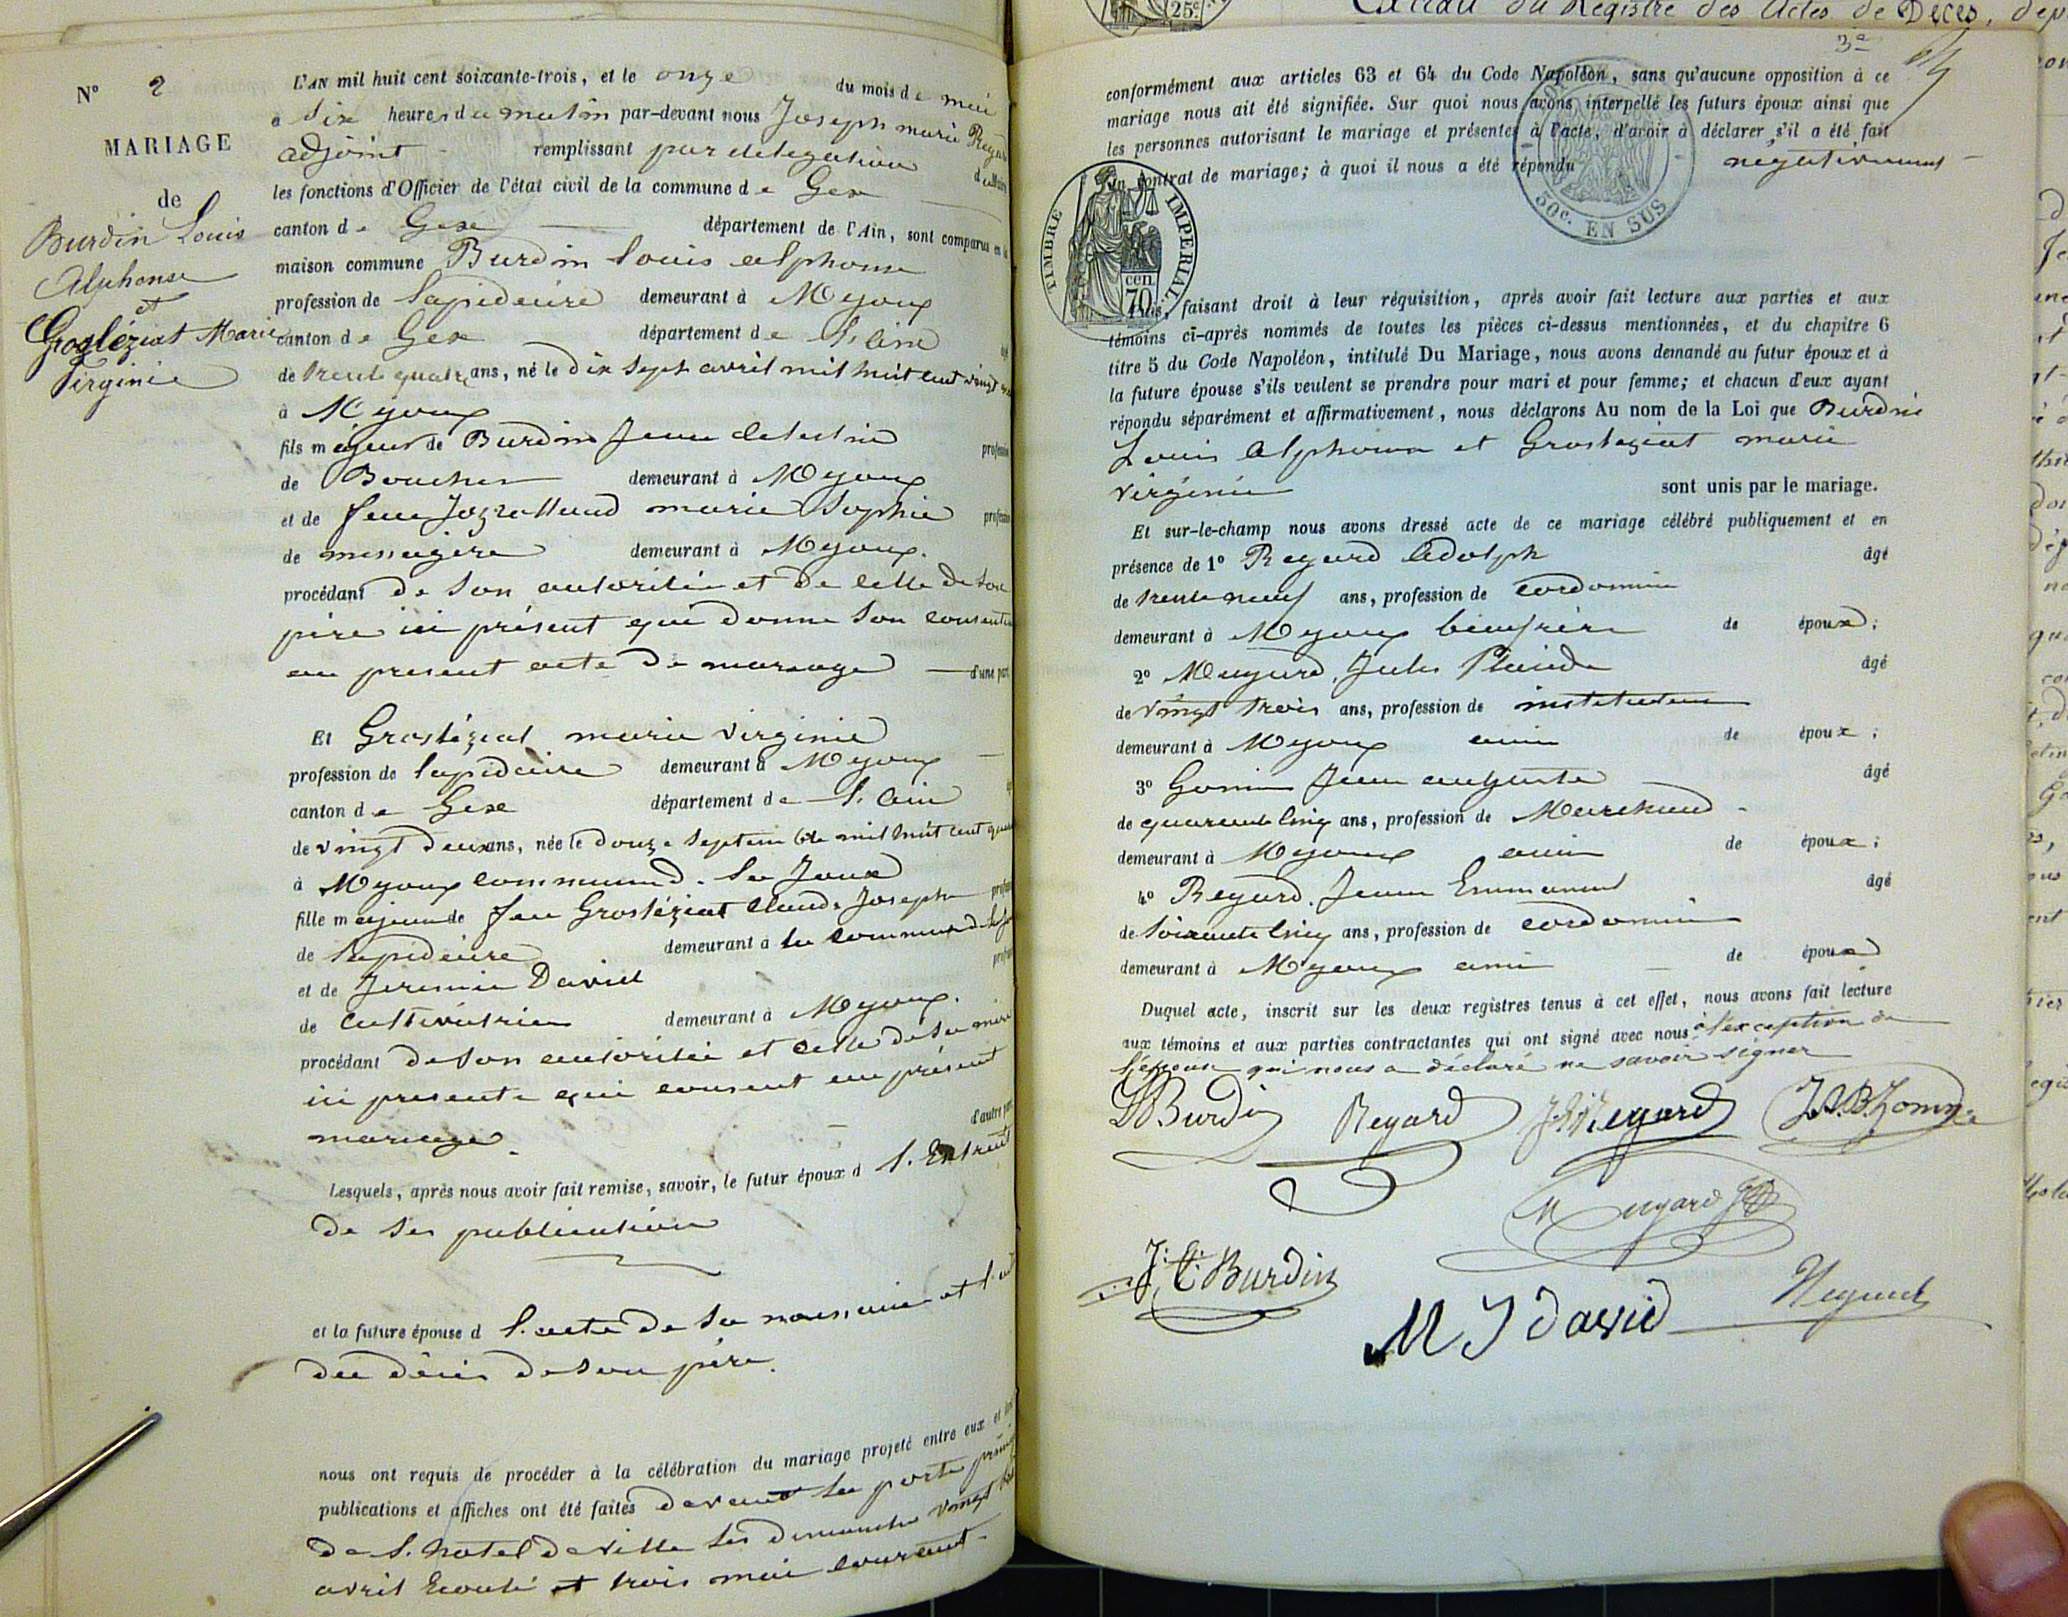 N° 2
MARIAGE
de
Burdin Louis
Alphonse
et
Grosléziat Marie
Virginie
L'AN mil huit cent soixante-trois, et le onze du mois de mai
à dix heures du matin par-devant nous Joseph marie Regard
adjoint remplissant par délégation
les fonctions d'Officier de l'état civil de la commune de Gex
canton de Gex département de l'Ain, sont comparus en la
maison commune Burdin Louis alphonse
profession de lapidaire demeurant à Mijoux
canton de Gex département de l'ain
de trente quatre ans, né le dix sept avril mil huit cent vingt
à Mijoux
fils majeur de Burdin Jean Celestin profession
de Boucher demeurant à Mijoux
et de feue marie Sophie profession
de menagère demeurant à Mijoux.
procédant de son autoritée et de celle de son
père ici présent qui donne son
au present acte de mariage d'une part
Et Grosléziat marie virginie
profession de lapidaire demeurant à Mijoux
canton de Gex département de l'ain
de vingt deux ans, née le douze septembre mil huit cent
à Mijoux commune de la Joux
fille majeure de feu Grosléziat Claude Joseph
de lapidaire demeurant à la commune de la
et de Jeremie David
de cultivatrice demeurant à Mijoux.
procédant de son autoritée et celle de sa mère
ici presente qui consent au présent
mariage d'autre part
Lesquels, après nous avoir fait remise, savoir, le futur époux d l. Extrait
de ses publication
et la future épouse d l. acte de sa naissance et l.
du décès de son père.
nous ont requis de procéder à la célébration du mariage projeté entre eux et
publications et affiches ont été faites devant la porte
de l. hotel de ville les dimanche vingt
avril écoulé et trois mai courant
25c.
Extrait du Registre des Actes de Décès,
3e
conformément aux articles 63 et 64 du Code Napoléon, sans qu'aucune opposition à ce
mariage nous ait été signifiée. Sur quoi nous avons interpellé les futurs époux ainsi que
les personnes autorisant le mariage et présentes à l'acte, d'avoir à déclarer s'il a été fait
un contrat de mariage; à quoi il nous a été répondu négativement
50c. EN SUS
TIMBRE IMPERIAL
cen. 70
faisant droit à leur réquisition, après avoir fait lecture aux parties et aux
témoins ci-après nommés de toutes les pièces ci-dessus mentionnées, et du chapitre 6
titre 5 du Code Napoléon, intitulé Du Mariage, nous avons demandé au futur époux et à
la future épouse s'ils veulent se prendre pour mari et pour femme; et chacun d'eux ayant
répondu séparément et affirmativement, nous déclarons Au nom de la Loi que Burdin
Louis Alphonse et Grosleziat marie
virginie sont unis par le mariage.
Et sur-le-champ nous avons dressé acte de ce mariage célébré publiquement et en
présence de 1° Regard Adolph âgé
de trente neuf ans, profession de cordonnier
demeurant à Mijoux beaufrère de époux;
2° Jules Placide âgé
de vingt trois ans, profession de instituteur
demeurant à Mijoux ami de époux;
3° Jean auguste âgé
de quarente cinq ans, profession de Marchand
demeurant à Mijoux ami de époux;
4° Regard Jean Emmanuel âgé
de soixante cinq ans, profession de cordonnier
demeurant à Mijoux ami de époux
Duquel acte, inscrit sur les deux registres tenus à cet effet, nous avons fait lecture
aux témoins et aux parties contractantes qui ont signé avec nous à l'exception de
l'épouse qui nous a déclaré ne savoir signer
Burdin Regard Regard
J. C. Burdin
M J David Regard